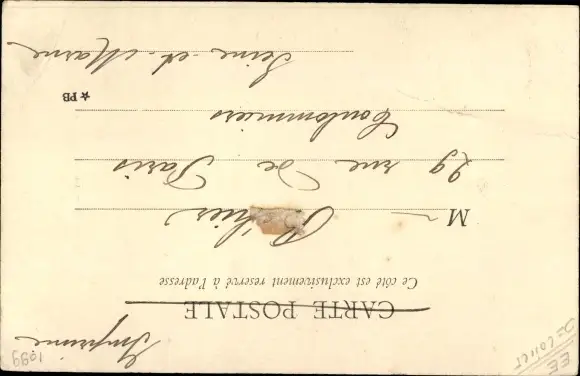 Imprimé
CARTE POSTALE
Ce côté est exclusivement reservé à l'adresse
M
29 rue De Paris
Coulommiers
★ PB
Seine-et-Marne
1099
EE